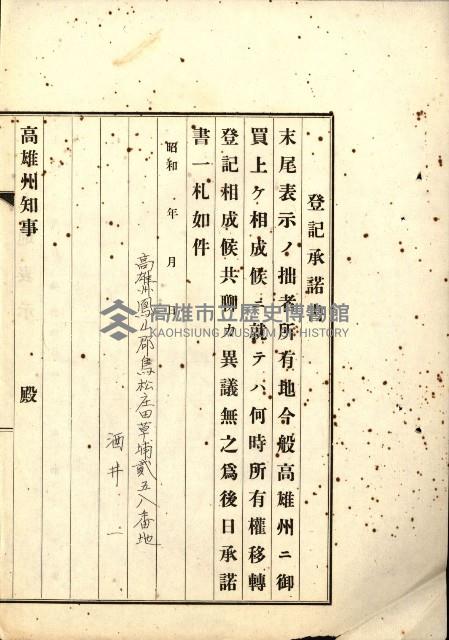 登記承諾書
末尾表示ノ拙者所有地今般高雄州ニ御
買上ケ相成候ニ就テハ何時所有權移轉
登記相成候共聊カ異議無之爲後日承諾
書一札如件
昭和 年 月 日
高雄州鳳山郡鳥松庄田草埔貳五八番地
酒井 一
高雄州知事 殿
高雄市立歷史博物館
KAOHSIUNG MUSEUM OF HISTORY